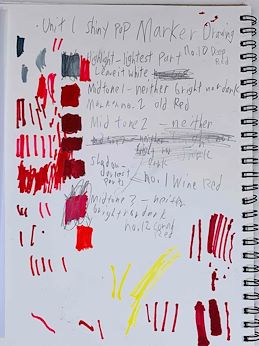 Unit 1 Shiny Pop Marker Drawing
Highlight - lightest Part no.10 Deep Red
Leave it white
Midtone 1 - neither bright nor dark
Marker no. 2 old Red
Mid tone 2 - neither
dark
Shadow - darkest Parts
no.1 Wine Red
Midtone 3 - neither
bright nor dark
no.12 Coral Red